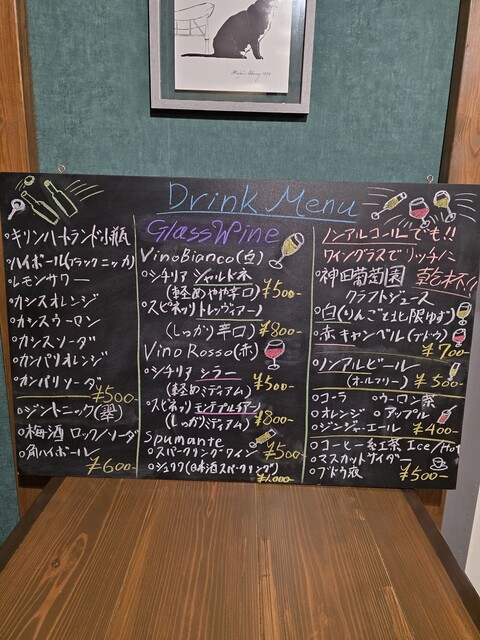 Drink Menu
○キリンハートランド小瓶
○ハイボール(ブラックニッカ)
○レモンサワー
○カシスオレンジ
○カシスウーロン
○カシスソーダ
○カンパリオレンジ
○カンパリソーダ
¥500-
○ジントニック(翠)
○梅酒 ロック/ソーダ
○角ハイボール
¥600-
Glass Wine
Vino Bianco(白)
○シチリア シャルドネ
(軽めやや辛口) ¥500-
○スピネッリ トレッヴィアーノ
(しっかり辛口) ¥800-
Vino Rosso(赤)
○シチリア シラー
(軽めミディアム) ¥500-
○スピネッリ モンテプルチアーノ
(しっかりミディアム) ¥800-
Spumante
○スパークリングワイン ¥500-
○シュワワ(日本酒スパークリング)
¥1,000-
ノンアルコールでも!!
ワイングラスでリッチに
○神田葡萄園 乾杯!!
クラフトジュース
○白(りんごと北限ゆず)
○赤 キャンベル(ブドウ)
¥700-
○ノンアルビール
(オールフリー) ¥500-
○コーラ ○ウーロン茶
○オレンジ ○アップル
○ジンジャーエール ¥400-
○コーヒー 紅茶 Ice/Hot
○マスカットサイダー
○ブドウ液 ¥500-